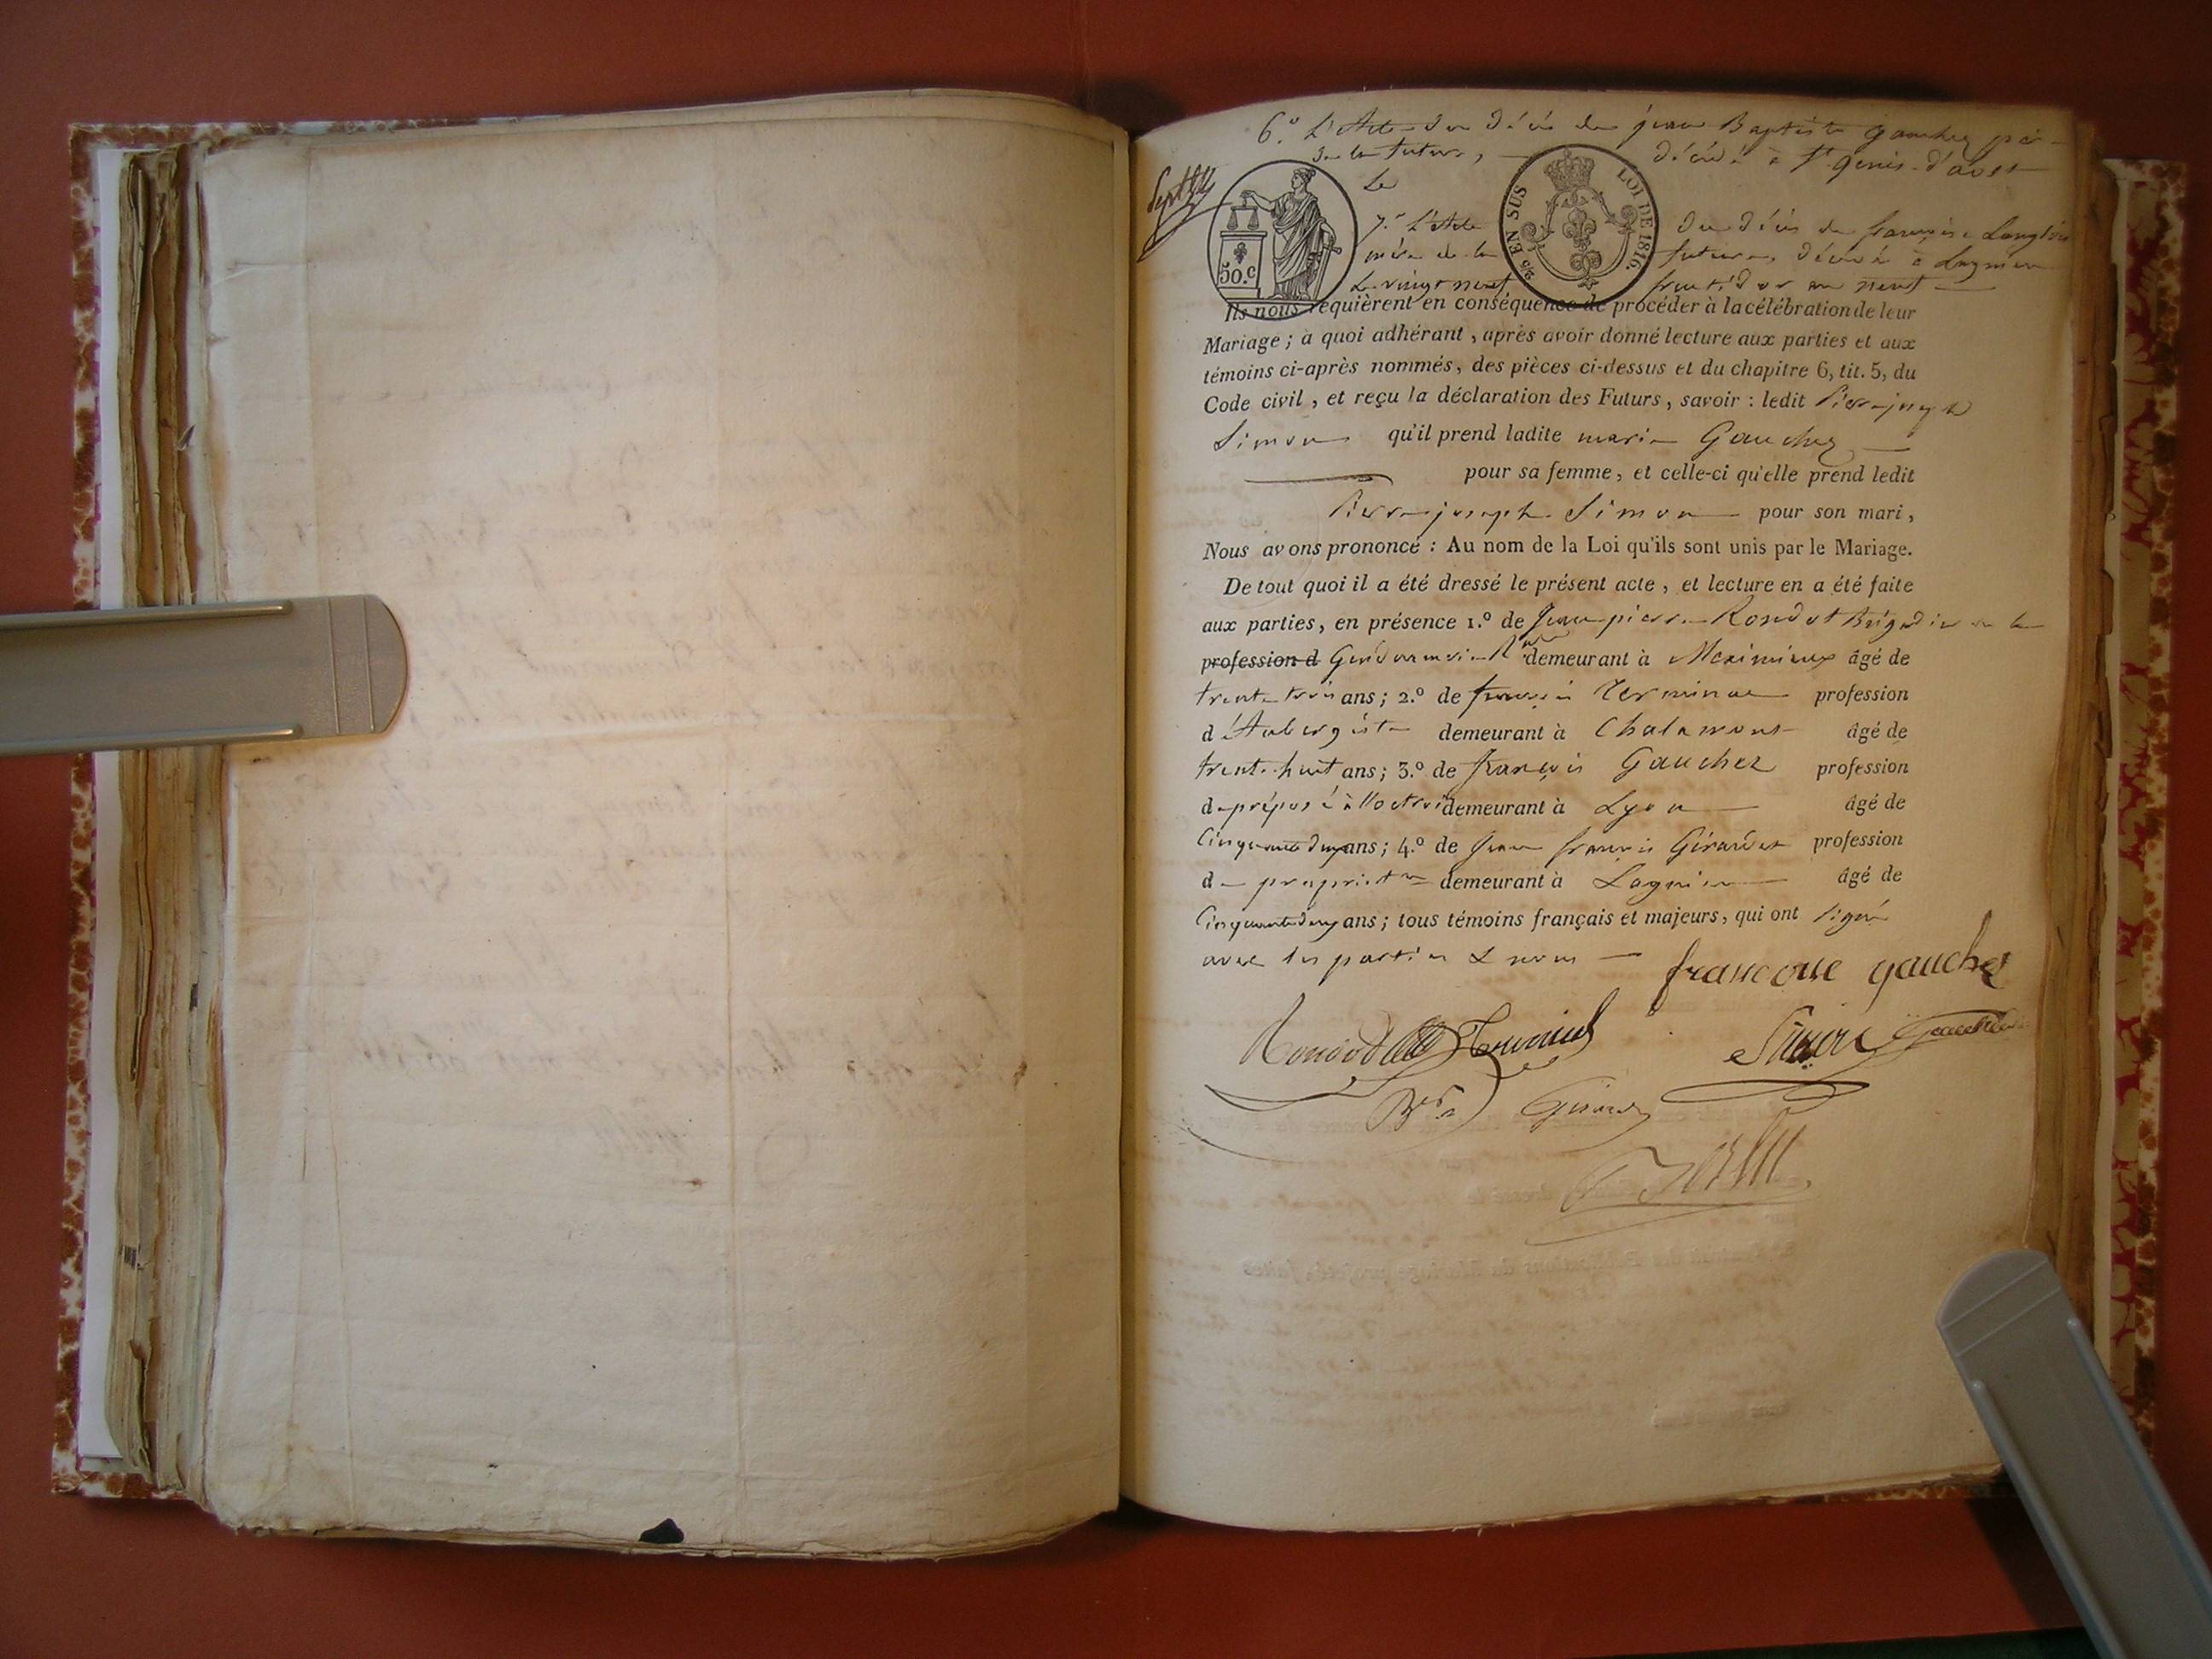 6.º L'Acte du décès de jean Baptiste Gauchez père
de la future, décédé à St. genis-d'aost
Le
7.º L'Acte du décès de françoise Langlois
mère de la future, décédée à Lagnieu
Le vingt neuf fructidor an neuf
50.c
2/5 EN SUS LOI DE 1816.
Ils nous requièrent en conséquence de procéder à la célébration de leur
Mariage ; à quoi adhérant , après avoir donné lecture aux parties et aux
témoins ci-après nommés, des pièces ci-dessus et du chapitre 6, tit. 5, du
Code civil , et reçu la déclaration des Futurs , savoir : ledit Pierre joseph
Simon qu'il prend ladite marie Gauchez
pour sa femme , et celle-ci qu'elle prend ledit
Pierre joseph Simon pour son mari ,
Nous avons prononcé : Au nom de la Loi qu'ils sont unis par le Mariage.
De tout quoi il a été dressé le présent acte , et lecture en a été faite
aux parties, en présence 1.º de Jean pierre Rondot Brigadier de la
profession d Gendarmerie Rale demeurant à Meximieux âgé de
trente trois ans ; 2.º de françois profession
d'Aubergiste demeurant à Chalamont âgé de
trente huit ans ; 3.º de françois Gauchez profession
de préposé à l'octroi demeurant à Lyon âgé de
Cinquante deux ans ; 4.º de Jean françois Girardet profession
de propriétre demeurant à Lagnieu âgé de
Cinquante deux ans ; tous témoins français et majeurs, qui ont signé
avec les parties & nous
francoise gauchez
Rondot Simon Gauchez
Bder Girardet